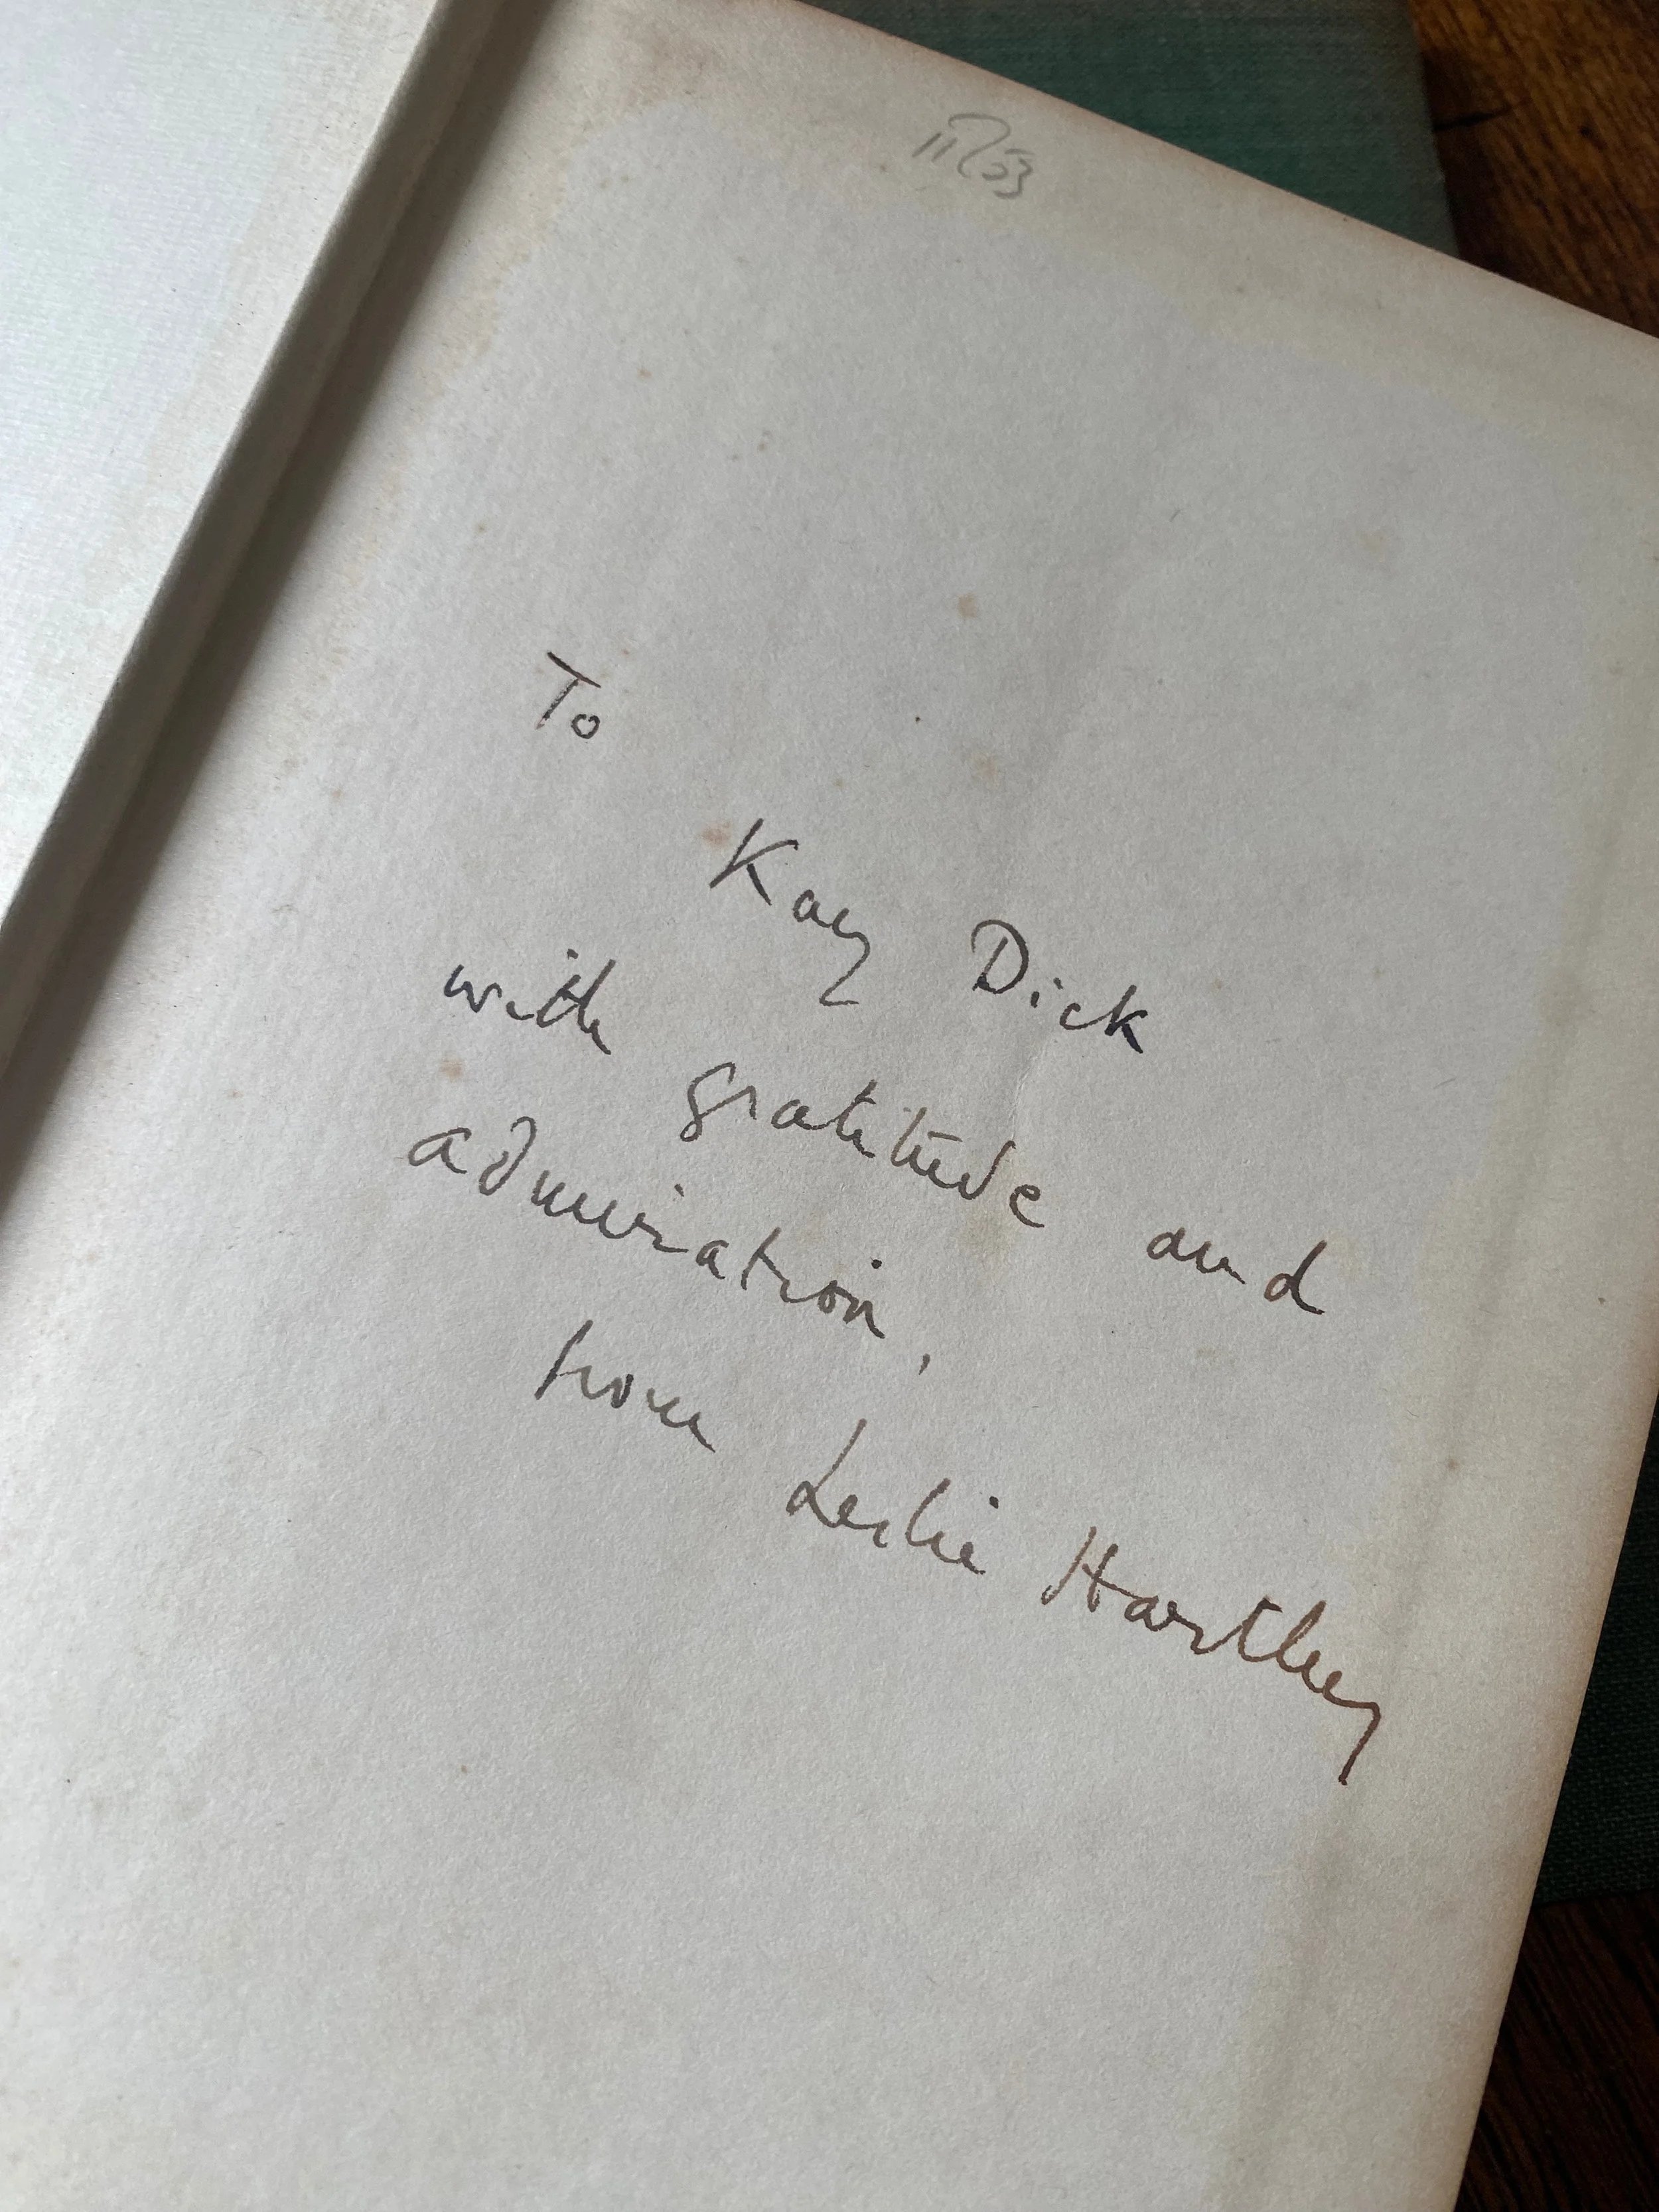 To
Kay Dick
with gratitude and
admiration,
from Leslie Hartley